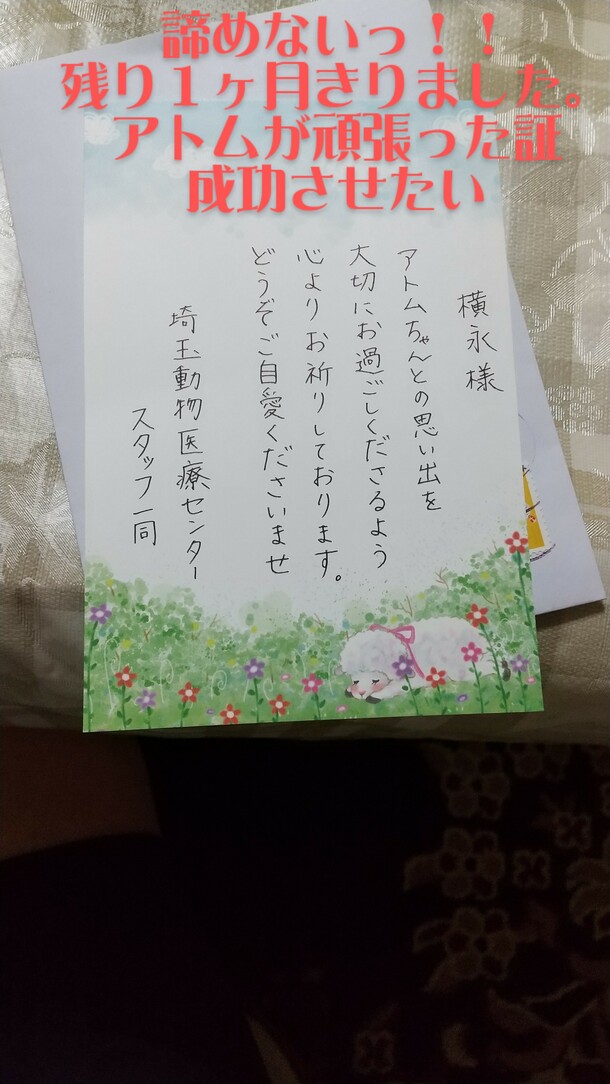 諦めないっ！！
残り１ヶ月きりました。
アトムが頑張った証
成功させたい
横永様
アトムちゃんとの思い出を
大切にお過ごしくださるよう
心よりお祈りしております。
どうぞご自愛くださいませ
埼玉動物医療センター
スタッフ一同